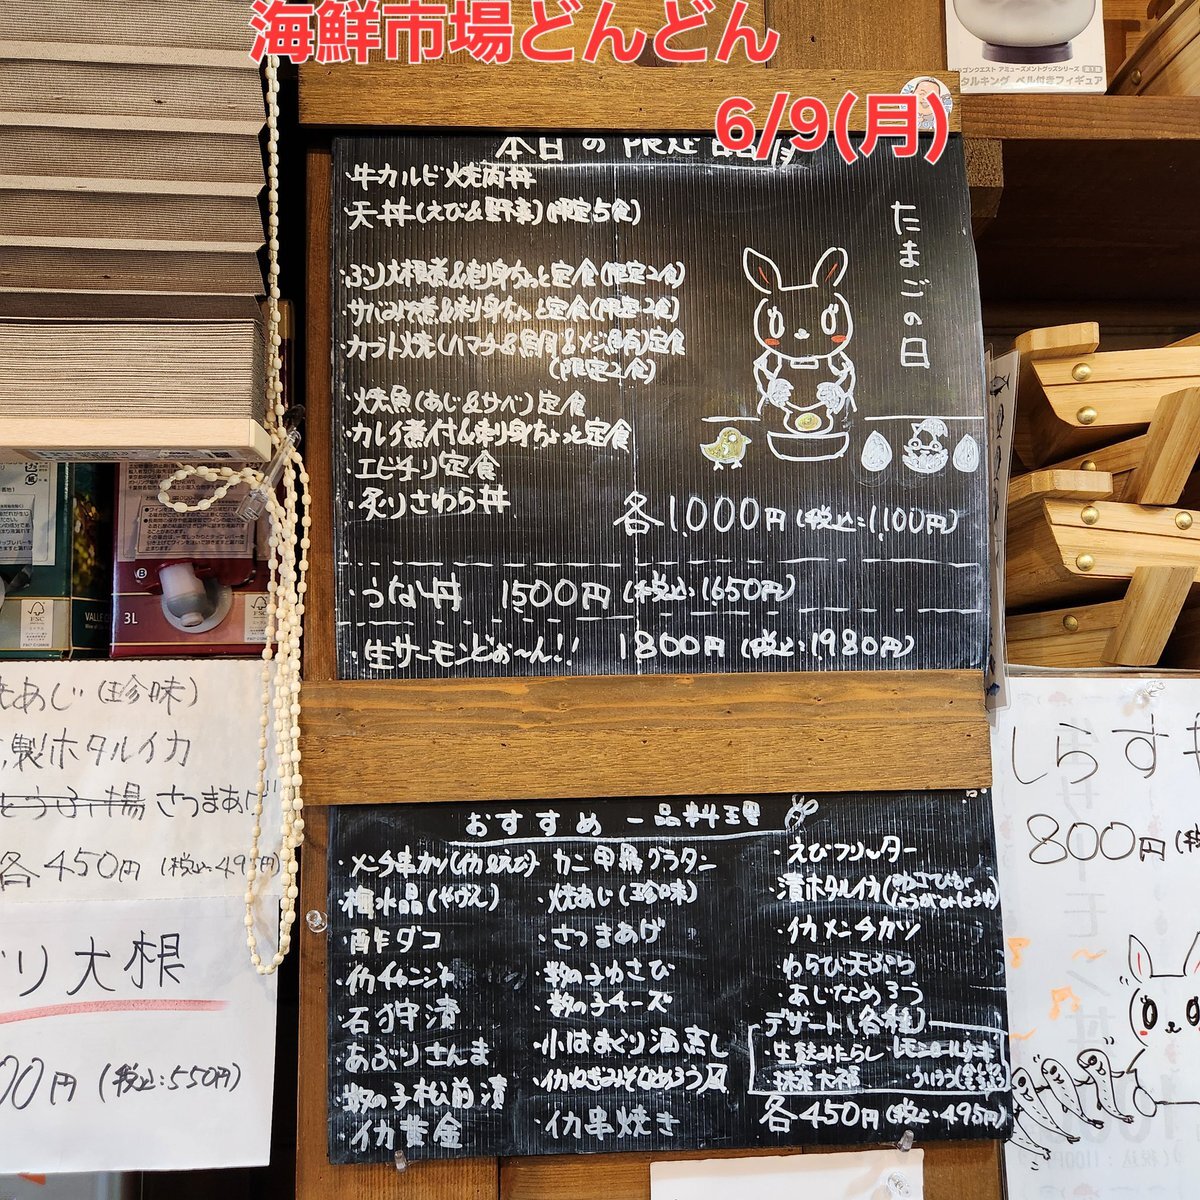 海鮮市場どんどん
6/9(月)
本日の限定品
牛カルビ焼肉丼
・天丼(えび&野菜)(限定5食)
・ぶり大根煮&刺身ちょっと定食(限定2食)
・サバみそ煮&刺身ちょっと定食(限定2食)
・カブト焼(ハマチ&真鯛&メジ鮪)定食
(限定2食)
・焼魚(あじ&サバ)定食
・カレイ煮付&刺身ちょっと定食
・エビチリ定食
・炙りさわら丼
各1,000円(税込:1,100円)
たまごの日
・うな丼 1500円(税込:1650円)
・生サーモンどぉ〜ん!! 1800円(税込:1980円)
おすすめ一品料理
・メンチ串カツ(イカ&えび)
・梅水晶(やげん)
・酢ダコ
・イカチャンジャ
・石狩漬
・あぶりさんま
・数の子松前漬
・イカ黄金
カニ甲羅グラタン
・焼あじ(珍味)
・さつまあげ
・数の子わさび
・数の子チーズ
・小はまぐり酒蒸し
・イカねぎみそなめろう風
・イカ串焼き
・えびフリッター
・漬ホタルイカ
・イカメンチカツ
・わらび天ぷら
・あじなめろう
デザート(各種)
・生飲みたらし
レモンロールケーキ
・抹茶大福
・ういろう
各450円(税込:495円)
焼あじ(珍味)
製ホタルイカ
さつまあげ
各450円(税込:495円)
ぶり大根
00円(税込:550円)
しらす
800円(税
3L
VALLE C
FSC
タルキング ベル付きフィギュア